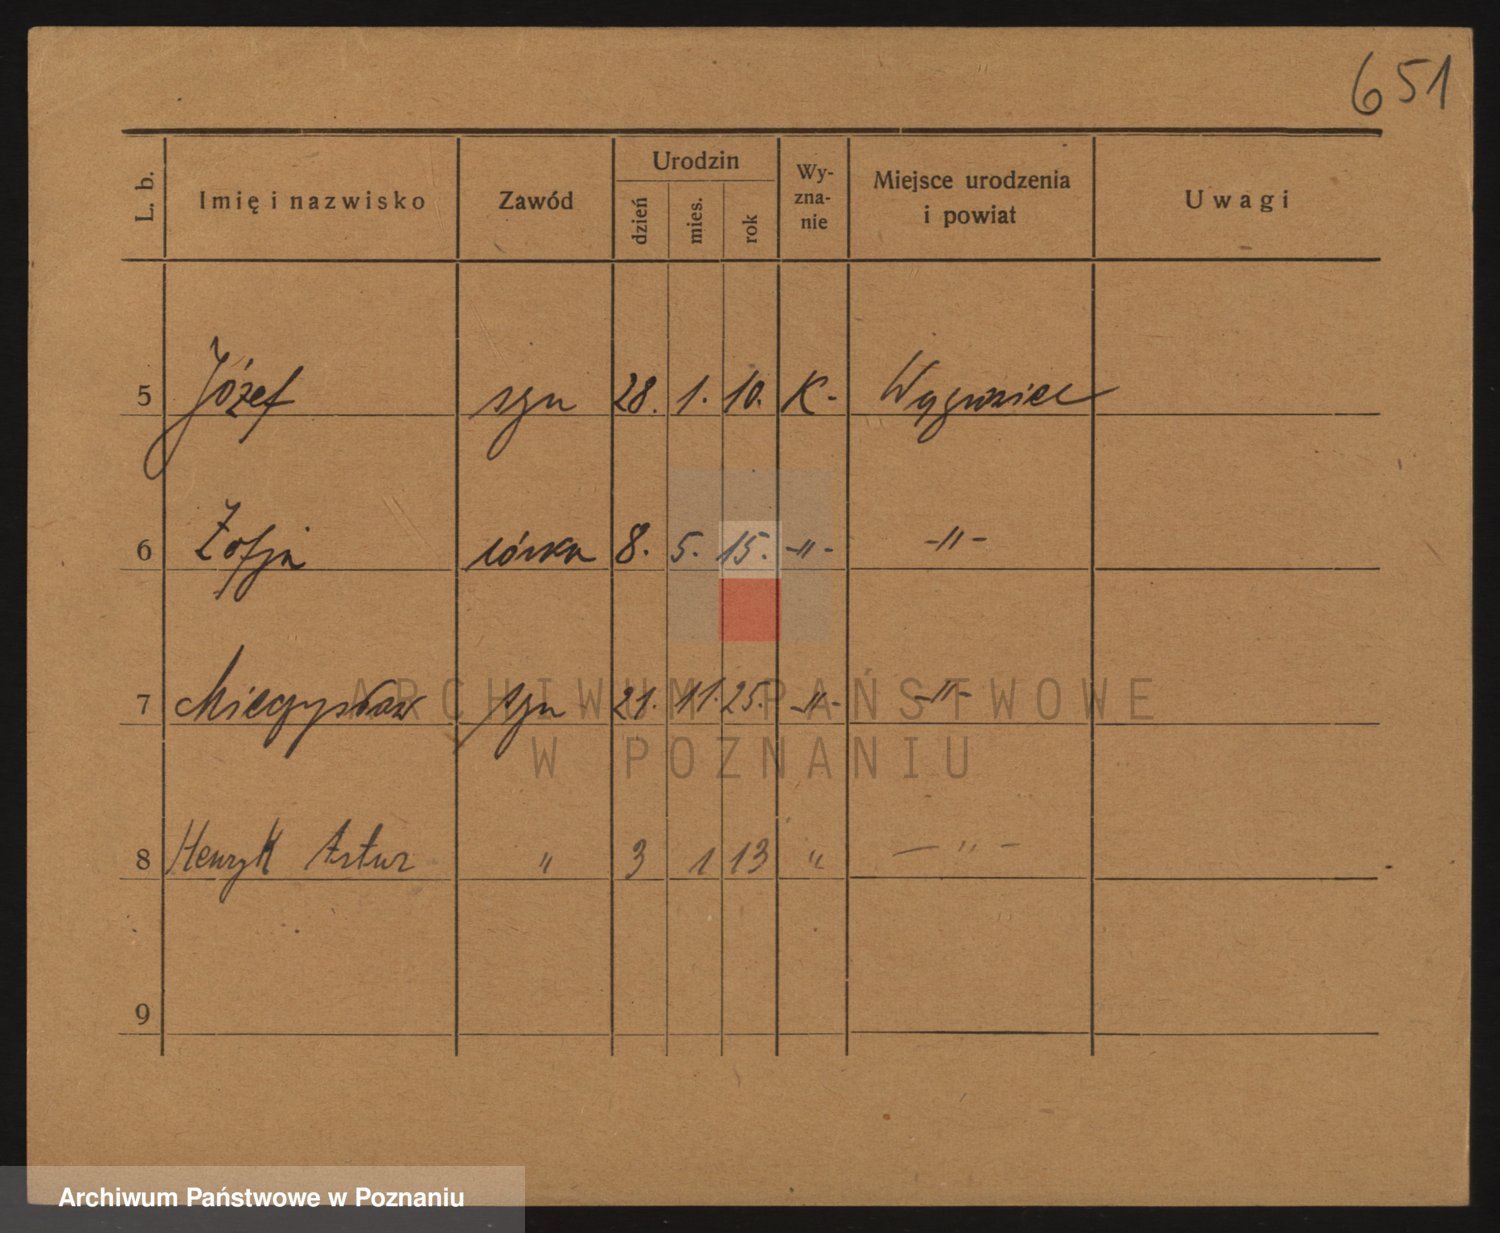 651
L. b. Imię i nazwisko Zawód Urodzin dzień mies. rok Wy- zna- nie Miejsce urodzenia i powiat Uwagi
5 Józef syn 28. 1. 10. K-
6 Zofja córka 8. 5. 15. -"- -"-
7 Mieczysław syn 21. 11. 25. -"- -"-
8 Henryk Artur " 3 1 13 " — " -
9
ARCHIWUM PAŃSTWOWE
W POZNANIU
Archiwum Państwowe w Poznaniu